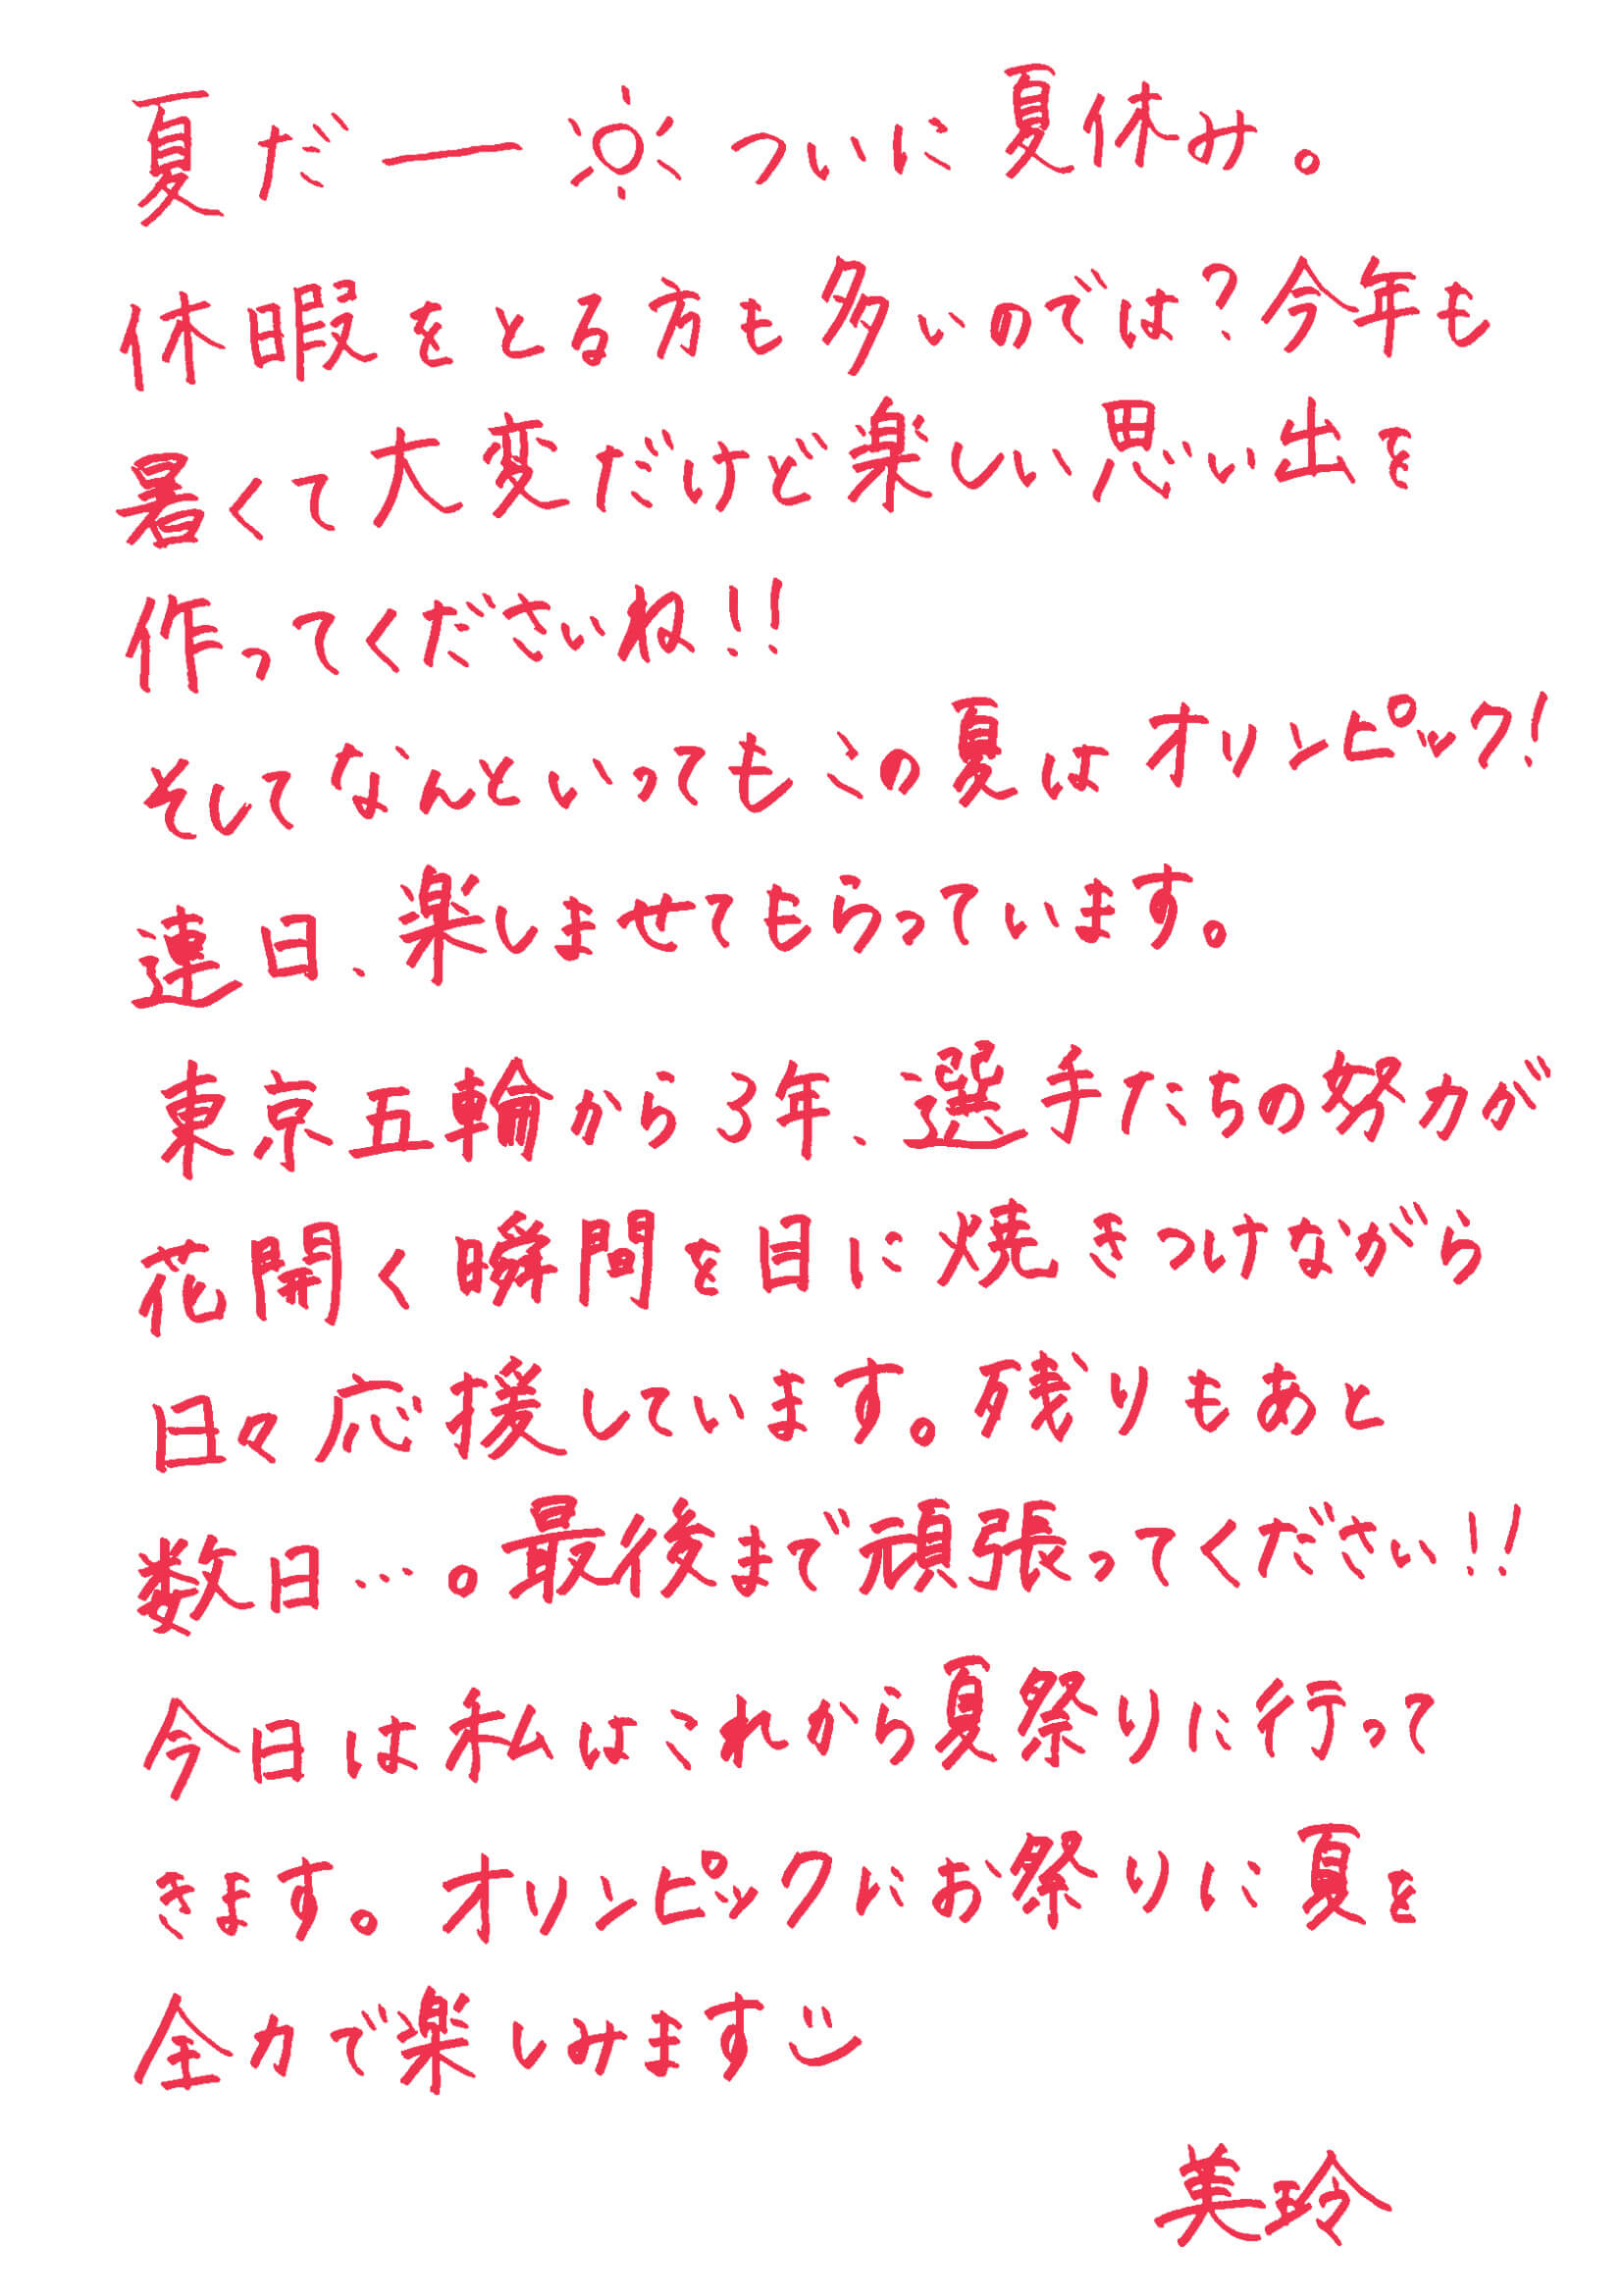 夏だー☀ついに夏休み。
休暇をとる方も多いのでは?今年も
暑くて大変だけど楽しい思い出を
作ってくださいね!!
そしてなんといってもこの夏はオリンピック!
連日、楽しませてもらっています。
東京五輪から3年、選手たちの努力が
花開く瞬間を目に焼きつけながら
日々応援しています。残りもあと
数日…。最後まで頑張ってください!!
今日は私はこれから夏祭りに行って
きます。オリンピックにお祭りに夏を
全力で楽しみます
美玲